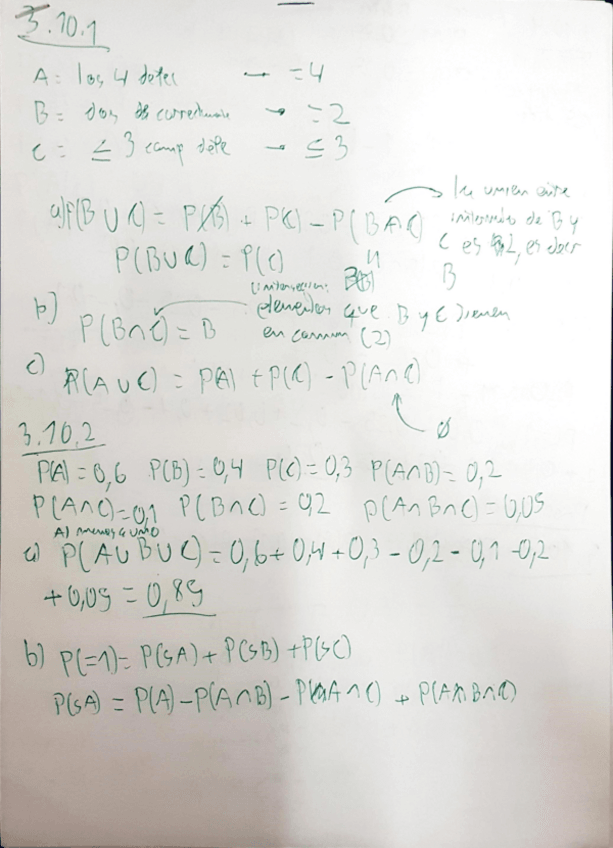 3.10.1
A = los 4 defec → = 4
B = dos → = 2
C = ≤ 3 camp defe → ≤ 3
a) P(B ∪ C) = P(B) + P(C) − P(B ∩ C) → La union entre
interseccion de B y
C es 2, es decir
B
P(B ∪ C) = P(C)
b) P(B ∩ C) = B
(interseccion:
elementos que B y C tienen
en comun (2)
c) P(A ∪ C) = P(A) + P(C) − P(A ∩ C)
∅
3.10.2
P(A) = 0,6 P(B) = 0,4 P(C) = 0,3 P(A∩B) = 0,2
P(A∩C) = 0,1 P(B∩C) = 0,2 P(A∩B∩C) = 0,05
Al menos uno
a) P(A ∪ B ∪ C) = 0,6 + 0,4 + 0,3 − 0,2 − 0,1 − 0,2
+ 0,05 = 0,85
b) P(=1) = P(sA) + P(sB) + P(sC)
P(sA) = P(A) − P(A∩B) − P(A∩C) + P(A∩B∩C)